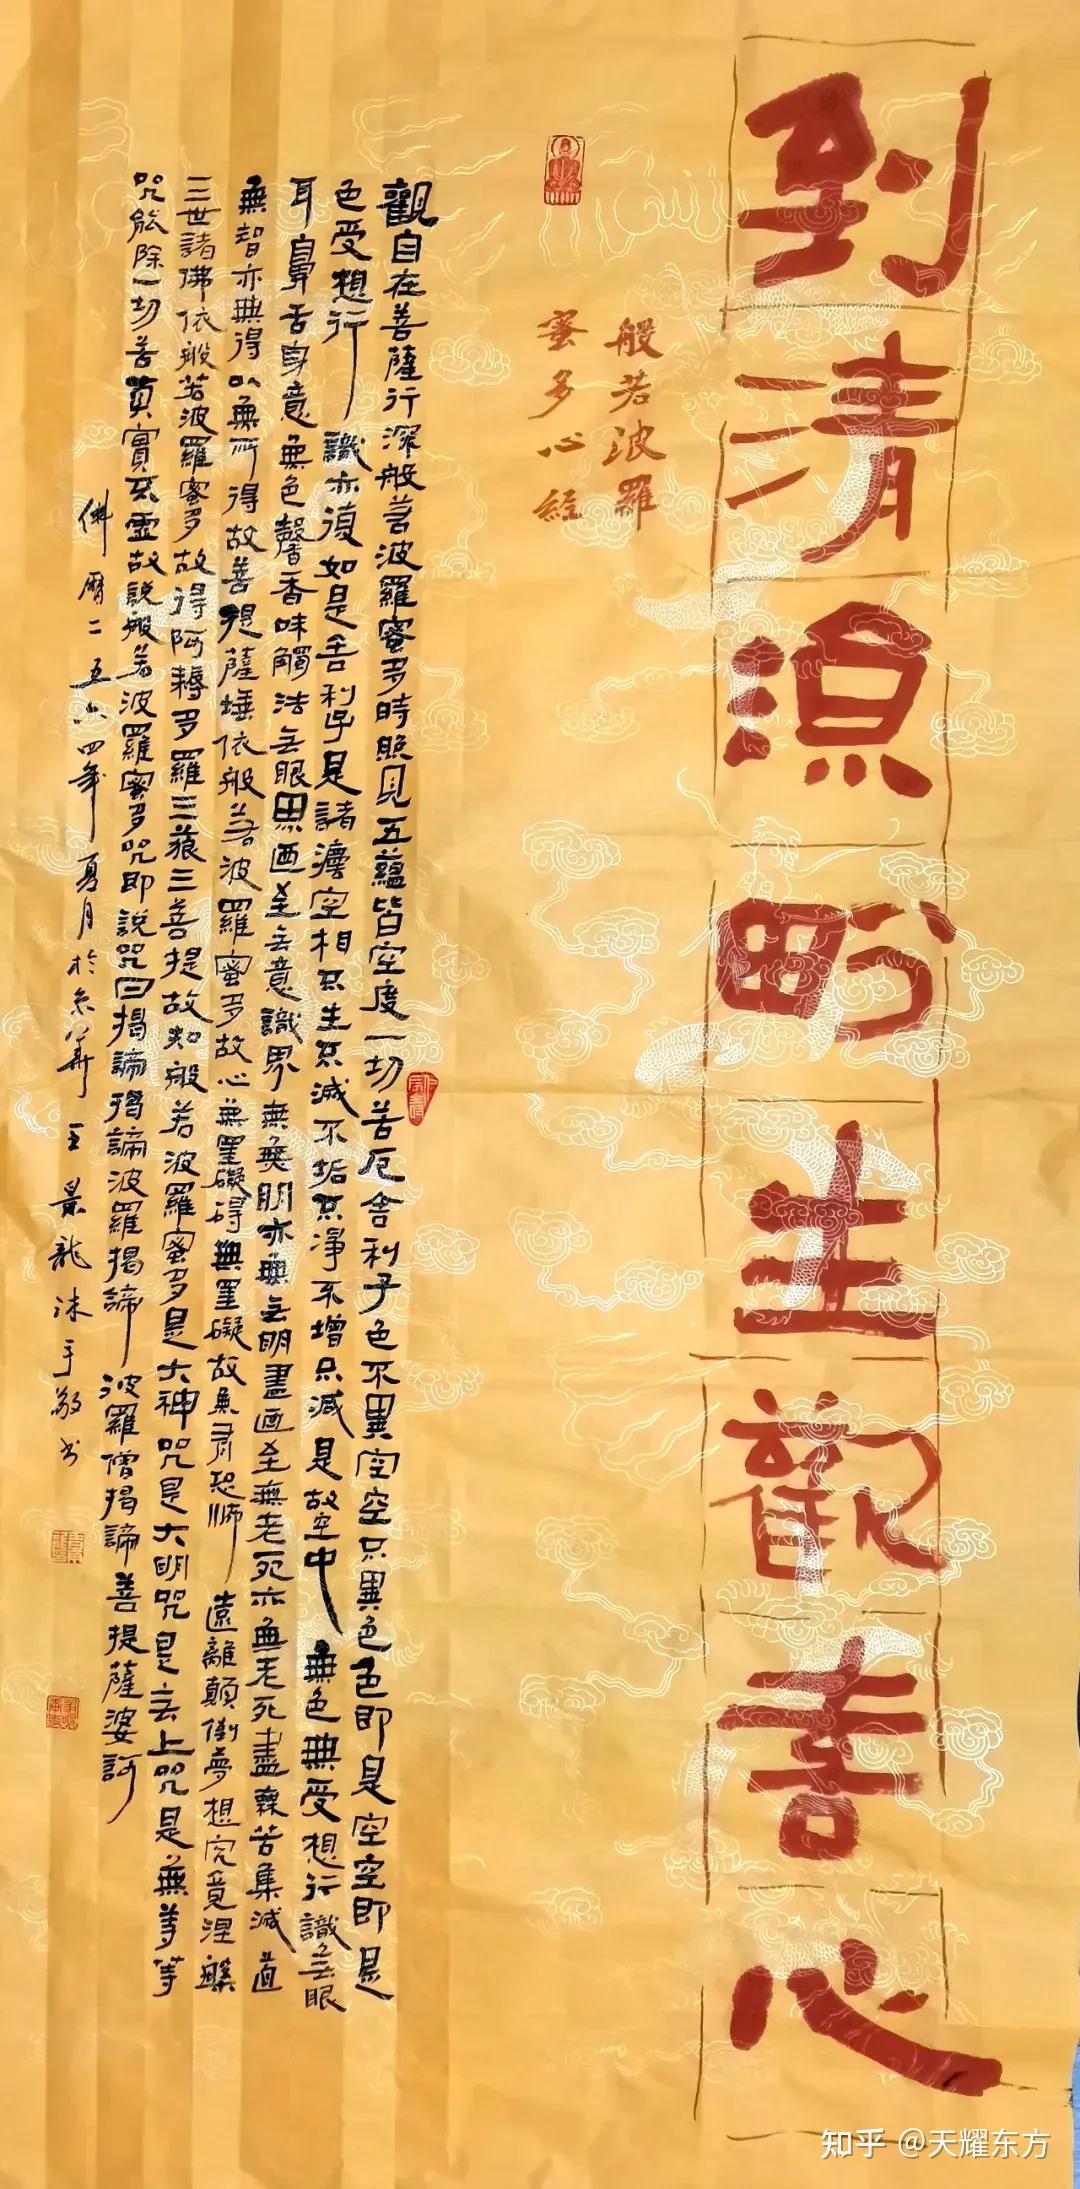 到清涼畍生歡喜心
般若波羅
蜜多心經
觀自在菩薩行深般若波羅蜜多時照見五蘊皆空度一切苦厄舍利子色不異空空不異色色即是空空即是
色受想行識亦復如是舍利子是諸灋空相不生不滅不垢不淨不增不減是故空中無色無受想行識无眼
耳鼻舌身意無色聲香味觸法无眼界迺至无意識界無無明亦無无明盡迺至無老死亦無老死盡無苦集滅道
無智亦無得以無所得故菩提薩埵依般若波羅蜜多故心無罣礙碍無罣礙故無有恐怖遠離顛倒夢想究竟涅槃
三世諸佛依般若波羅蜜多故得阿耨多羅三藐三菩提故知般若波羅蜜多是大神咒是大明咒是无上咒是無等等
咒能除一切苦真實不虛故說般若波羅蜜多咒即說咒曰揭諦揭諦波羅揭諦波羅僧揭諦菩提薩婆訶
佛曆二五六四年夏月於京華王景龍沐手敬书
知乎 @天耀东方